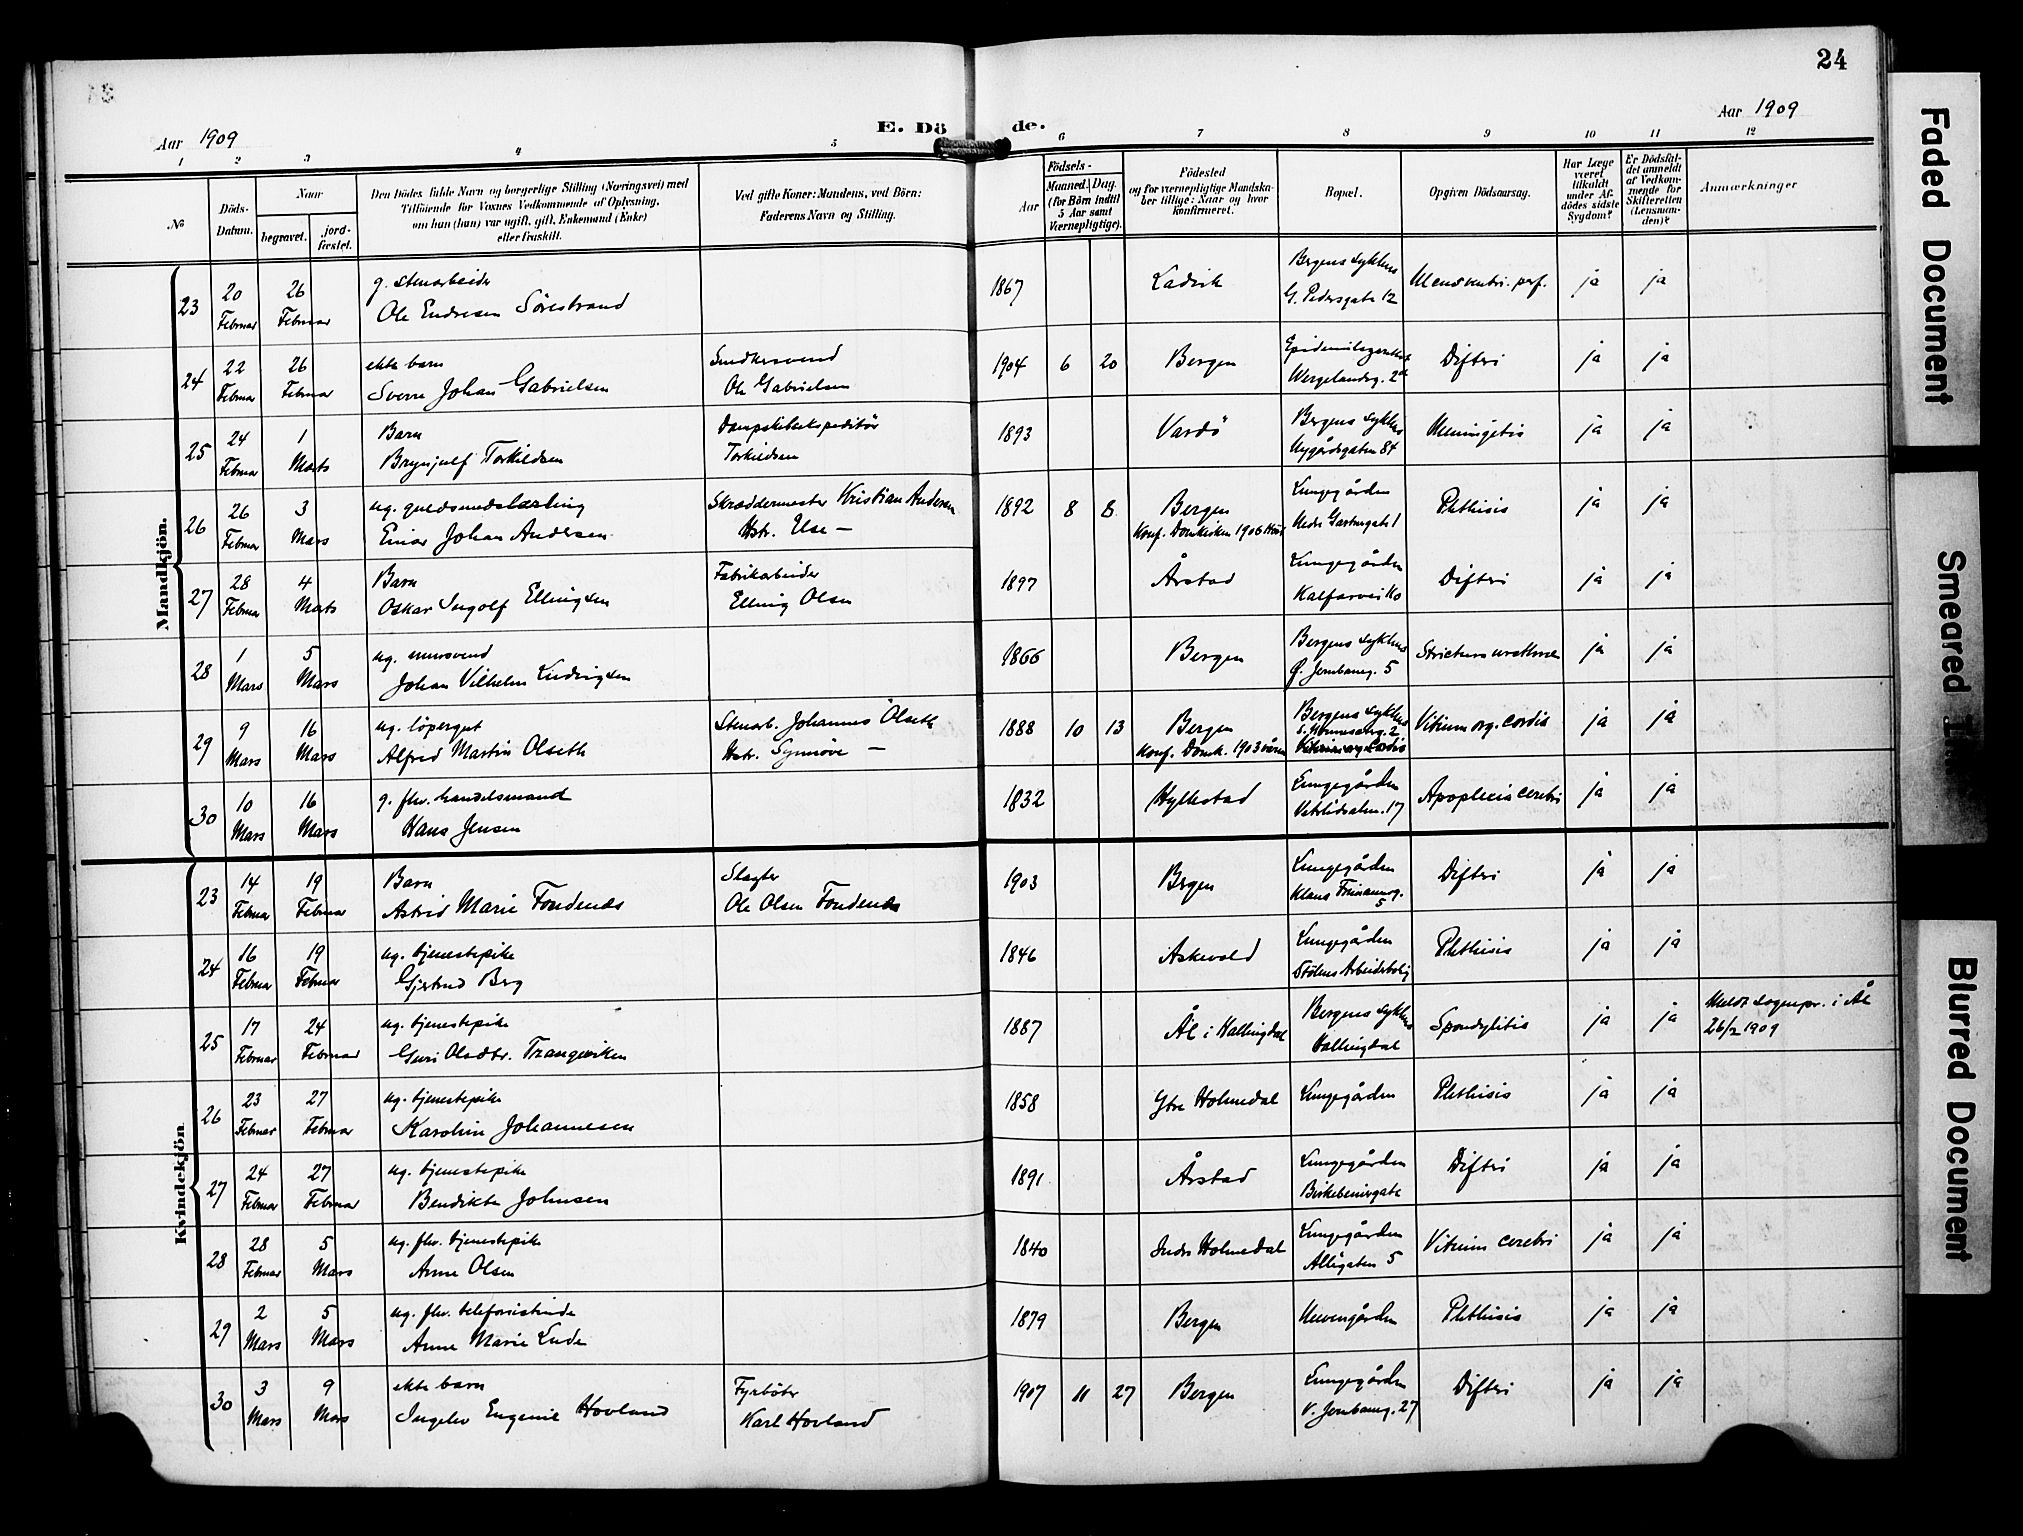 24
Aar 1909
E. Dö
de.
Aar 1909
1 2 3 4 5 6 7 8 9 10 11 12
№
Döds-
Datum.
Naar
begravet.
jord-
fæstet.
Den Dödes fulde Navn og borgerlige Stilling (Næringsvei) med
Tilföiende for Voxnes Vedkommende af Oplysning,
om han (hun) var ugift, gift, Enkemand (Enke)
eller fraskilt.
Ved gifte Koner: Mandens, ved Börn:
Faderens Navn og Stilling.
Födsels-
Aar
Maaned. Dag.
(for Börn indtil
5 Aar samt
Værnepligtige).
Födested
og for værnepligtige Mandska-
ber tillige: Naar og hvor
konfirmeret.
Bopæl.
Opgiven Dödsaarsag.
Har Læge
været
tilkaldt
under Af-
dödes sidste
Sygdom?
Er Dödsfal-
det anmeldt
af Vedkom-
mende for
Skifteretten
(Lensman-
den)?
Anmærkninger
Mandkjön.
23 20 Februar 26 Februar g. stenarbeider
Ole Endresen Sörestrand
1867 Ladvik Bergens Sykehus
G. Pedersgate 12 ja ja
24 22 Februar 26 Februar ekte barn
Sverre Johan Gabrielsen
Snedkersvend
Ole Gabrielsen
1904 6 20 Bergen
Wergelandsg. Difteri ja ja
25 24 Februar 1 Marts Barn
Brynjulf Torkildsen
Dampskibsekspeditör
Torkildsen
1893 Vardö Bergens Sykehus
Nygårdsgaten 84 Meningitis ja ja
26 26 Februar 3 Mars ug. guldsmedslærling
Einar Johan Andersen
Skræddermester Kristian Andersen
Hstr. Else —
1892 8 8 Bergen
Konf. Domkirken 1906 Höst
Lungegården Phthisis ja ja
27 28 Februar 4 Marts Barn
Oskar Ingolf Ellingsen
Fabrikarbeider
Elling Olsen
1897 Årstad Lungegården
Kalfarvei Difteri ja ja
28 1 Mars 5 Mars ug. mursvend
Johan Vilhelm Ludvigsen
1866 Bergen Bergens Sykehus
Ö. Jernbaneg. 5 ja ja
29 9 Mars 16 Mars ug. löpergut
Alfred Martin Olseth
Stenarb. Johannes Olseth
Hstr. Synnöve —
1888 10 13 Bergen
Konf. Domk. 1903 våren
Bergens Sykehus
Vitium org. cordis ja ja
30 10 Mars 16 Mars g. fhv. handelsmand
Hans Jensen
1832 Hyllestad Lungegården
Vetrlidsalm. 17 Apoplexia cerebri ja ja
Kvindekjön
23 14 Februar 19 Februar Barn
Astrid Marie Fondenes
Slagter
Ole Olsen Fondenes
1903 Bergen Lungegården
5 Difteri ja ja
24 16 Februar 19 Februar ug. tjenestepike
Gjertrud Berg
1846 Askevold Lungegården
Stölens Arbeiderbolig Phthisis ja ja
25 17 Februar 24 Februar ug. tjenestepike
Guri Olsdtr. Trangeviken
1887 Ål i Hallingdal Bergens Sykehus
Hallingdal Spondylitis ja ja
Meldt Sognepr. i Ål
26/2 1909
26 23 Februar 27 Februar ug. tjenestepike
Karoline Johannesen
1858 Ytre Holmedal Lungegården Phthisis ja ja
27 24 Februar 27 Februar ug. tjenestepike
Bendikte Johnsen
1891 Årstad Lungegården
Birkebeinergate Difteri ja ja
28 28 Februar 5 Mars ug. fhv. tjenestepike
Anne Olsen
1840 Indre Holmedal Lungegården
Allégaten 5 Vitium cerebri ja ja
29 2 Mars 5 Mars ug. fhv. telefonistinde
Anne Marie Lude
1879 Bergen Phthisis ja ja
30 3 Mars 9 Mars ekte barn
Ingelev Eugenie Hovland
Fyrböter
Karl Hovland
1907 11 27 Bergen Lungegården
V. Jernbaneg. 27 Difteri ja ja
Faded Document
Smeared
Blurred Document